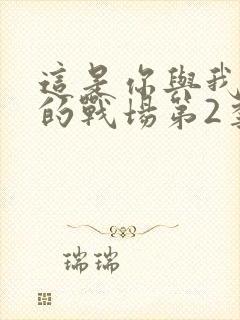 這是你與我
的戰場第2季
瑞瑞